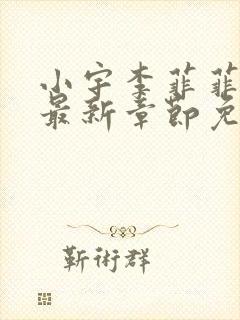 小宇李菲菲
最新章節免
靳術群